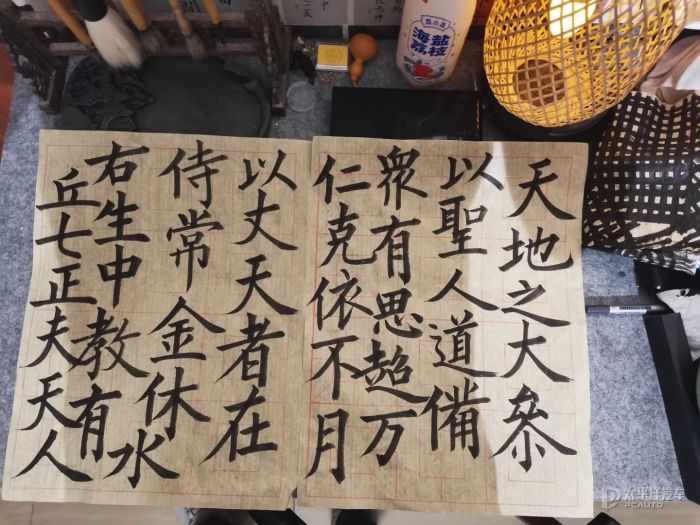 天地之大叅
以聖人道備
衆有思超万
仁克依不月
以丈天者在
侍常金休水
右生中教有
丘七正夫天人
荔小吉
海盐
荔枝
太平洋汽车
PCAUTO